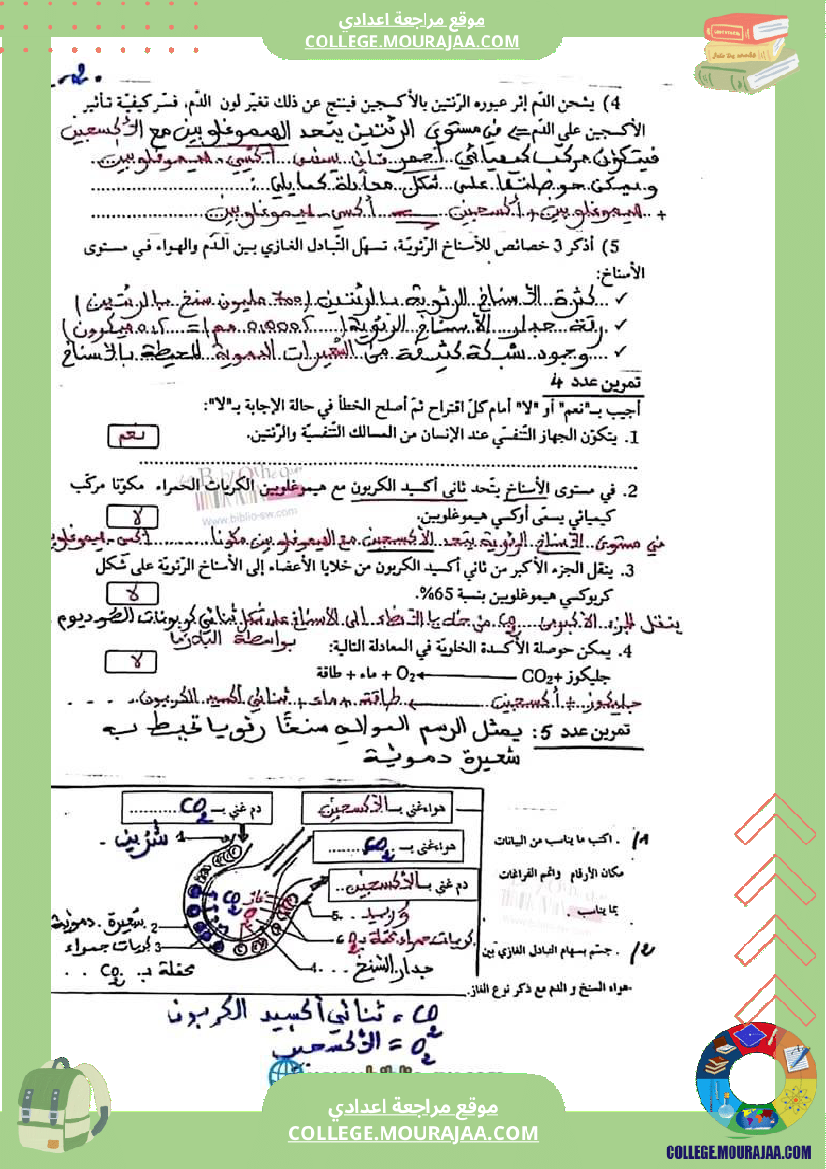 موقع مراجعة اعدادي
COLLEGE.MOURAJAA.COM
-2-
4) يشحن الدّم إثر عبوره الرّئتين بالأكسجين فينتج عن ذلك تغيّر لون الدّم، فسّر كيفيّة تأثير
الأكسجين على الدّم ⇐ في مستوى الرئتين يتحد الهيموغلوبين مع الأكسجين
فيتكون مركب كيميائي أحمر قاني يسمى أكسي-هيموغلوبين
ويمكن حوصلتها على شكل معادلة كما يلي :
هيموغلوبين + أكسجين → أكسي-هيموغلوبين
5) أذكر 3 خصائص للأسناخ الرّئويّة، تسهّل التّبادل الغازي بين الدّم والهواء في مستوى
الأسناخ:
✓ كثرة الأسناخ الرئوية بالرئتين (700 مليون سنخ بالرئتين)
✓ رقة جدار الأسناخ الرئوية (0,0002 مم = 0,2 ميكرون)
✓ وجود شبكة كثيفة من الشعيرات الدموية المحيطة بالأسناخ
تمرين عدد 4
أجيب بـ"نعم" أو "لا" أمام كلّ اقتراح ثمّ أصلح الخطأ في حالة الإجابة بـ"لا":
1. يتكوّن الجهاز التّنفّسي عند الإنسان من المسالك التّنفّسيّة والرّئتين.
نعم
2. في مستوى الأسناخ يتّحد ثاني أكسيد الكربون مع هيموغلوبين الكريات الحمراء مكوّنا مركّب
كيميائي يسمّى أوكسي هيموغلوبين.
لا
www.biblio-sw.com
في مستوى الأسناخ الرئوية يتحد الأكسجين مع الهيموغلوبين مكونا أكسي-هيموغلوبين
3. ينقل الجزء الأكبر من ثاني أكسيد الكربون من خلايا الأعضاء إلى الأسناخ الرّئويّة على شكل
كربوكسي هيموغلوبين بنسبة 65%.
لا
ينقل الجزء الأكبر من CO2 من خلايا الأعضاء إلى الأسناخ على شكل ثنائي كربونات الصوديوم
بواسطة البلازما
4. يمكن حوصلة الأكسدة الخلويّة في المعادلة التالية:
لا
جليكوز +CO2 ← O2 + ماء + طاقة
جليكوز + أكسجين ← طاقة + ماء + ثنائي أكسيد الكربون
تمرين عدد 5: يمثل الرسم الموالي سنخًا رئويا تحيط به
شعيرة دموية
1/ . اكتب ما يناسب من البيانات
مكان الأرقام واتمم الفراغات
بما يناسب .
2/ . جسّم بسهام التبادل الغازي بين
هواء السنخ و الدم مع ذكر نوع الغاز.
دم غني بـ CO2
هواء غني بـ الأكسجين
هواء غني بـ CO2
دم غني بـ الأكسجين
1 شريين
CO2
غاز
O2
2 شعيرة دموية
3 كريات حمراء
محملة بـ CO2
5 وريد
6 كريات حمراء محملة بـ O2
4 جدار السنخ
CO2 = ثنائي أكسيد الكربون
O2 = الأكسجين
موقع مراجعة اعدادي
COLLEGE.MOURAJAA.COM
COLLEGE.MOURAJAA.COM